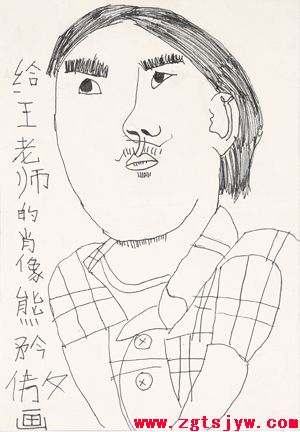 给王老师的肖像熊矜倩夕画
www.zgtsjyw.com